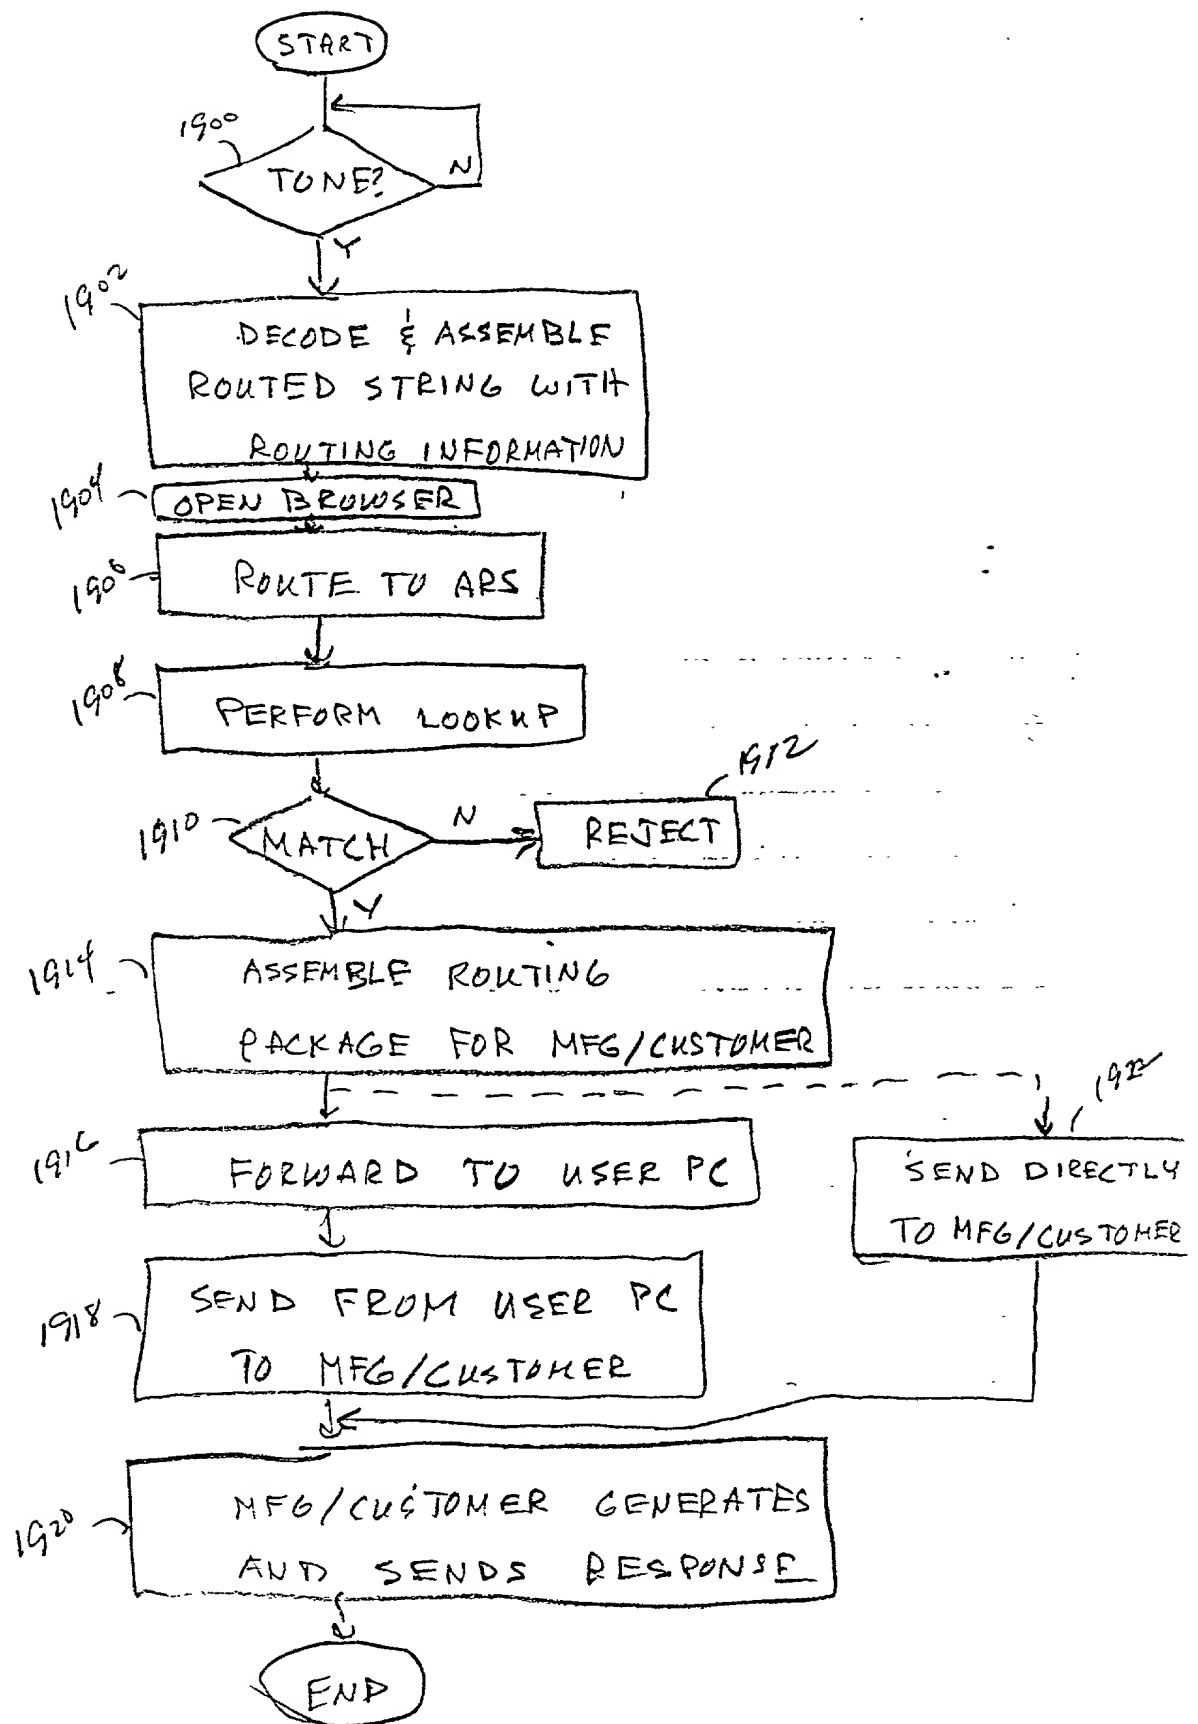 START
1900
TONE?
N
Y
1902
DECODE & ASSEMBLE
ROUTED STRING WITH
ROUTING INFORMATION
1904
OPEN BROWSER
1906
ROUTE TO ARS
1908
PERFORM LOOKUP
1912
1910
MATCH
N
REJECT
Y
1914
ASSEMBLE ROUTING
PACKAGE FOR MFG/CUSTOMER
1916
FORWARD TO USER PC
SEND DIRECTLY
TO MFG/CUSTOMER
1918
SEND FROM USER PC
TO MFG/CUSTOMER
1920
MFG/CUSTOMER GENERATES
AND SENDS RESPONSE
END